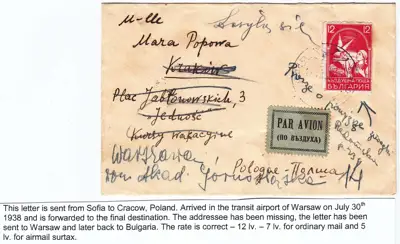 M-lle
Mara Popowa
Kraków
Plac Jabłonowskich, 3
"Jedność"
Kursy wakacyjne
Warszawa
dom Akad. Górnośląska 14
Pologne - Полша
12 12
ВЪЗДУШНА ПОЩА
БЪЛГАРИЯ
PAR AVION
(ПО ВЪЗДУХА)
This letter is sent from Sofia to Cracow, Poland. Arrived in the transit airport of Warsaw on July 30th
1938 and is forwarded to the final destination. The addressee has been missing, the letter has been
sent to Warsaw and later back to Bulgaria. The rate is correct – 12 lv. – 7 lv. for ordinary mail and 5
lv. for airmail surtax.